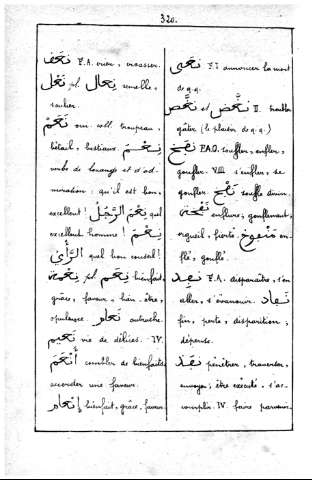 320.
نعق F.A. croasser.
نعل pl. نعال semelle,
soulier.
نعم coll. troupeau,
bétail, bestiaux. نعم
verbe de louange et d'ad-
miration: qu'il est bon,
excellent! نعم الرجل quel
excellent homme! نعم
الرأي quel bon conseil!
نعمة pl. نعم bienfait,
grâce, faveur, bien-être,
opulence. نعام autruche.
نعيم vie de délices. IV.
أنعم combler de bienfaits,
accorder une faveur.
إنعام bienfait, grâce, faveur.
نعى F.I annoncer la mort
de q.q.
نغص et نغّص II. troubler,
gâter (le plaisir de q.q.)
نفخ F.A.O. souffler, enfler,
gonfler. VIII s'enfler, se
gonfler نفخ souffle divin.
نفخة enflure, gonflement,
orgueil, fierté. منفوخ en-
flé, gonflé.
نفد F.A. disparaître, s'en
aller, s'évanouir. نفاد
fin, perte, disparition,
dépense.
نفذ pénétrer, traverser,
envoyer; être exécuté, s'ac-
complir. IV. faire parvenir.